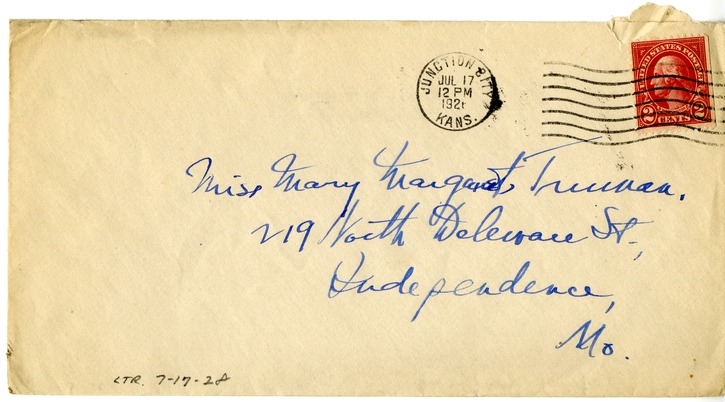 JUNCTION CITY
JUL 17
12 PM
KANS.
UNITED STATES POSTAGE
2 CENTS 2
Miss Mary Margaret Truman.
219 North Deleware St.,
Independence,
Mo.
LTR. 7-17-28